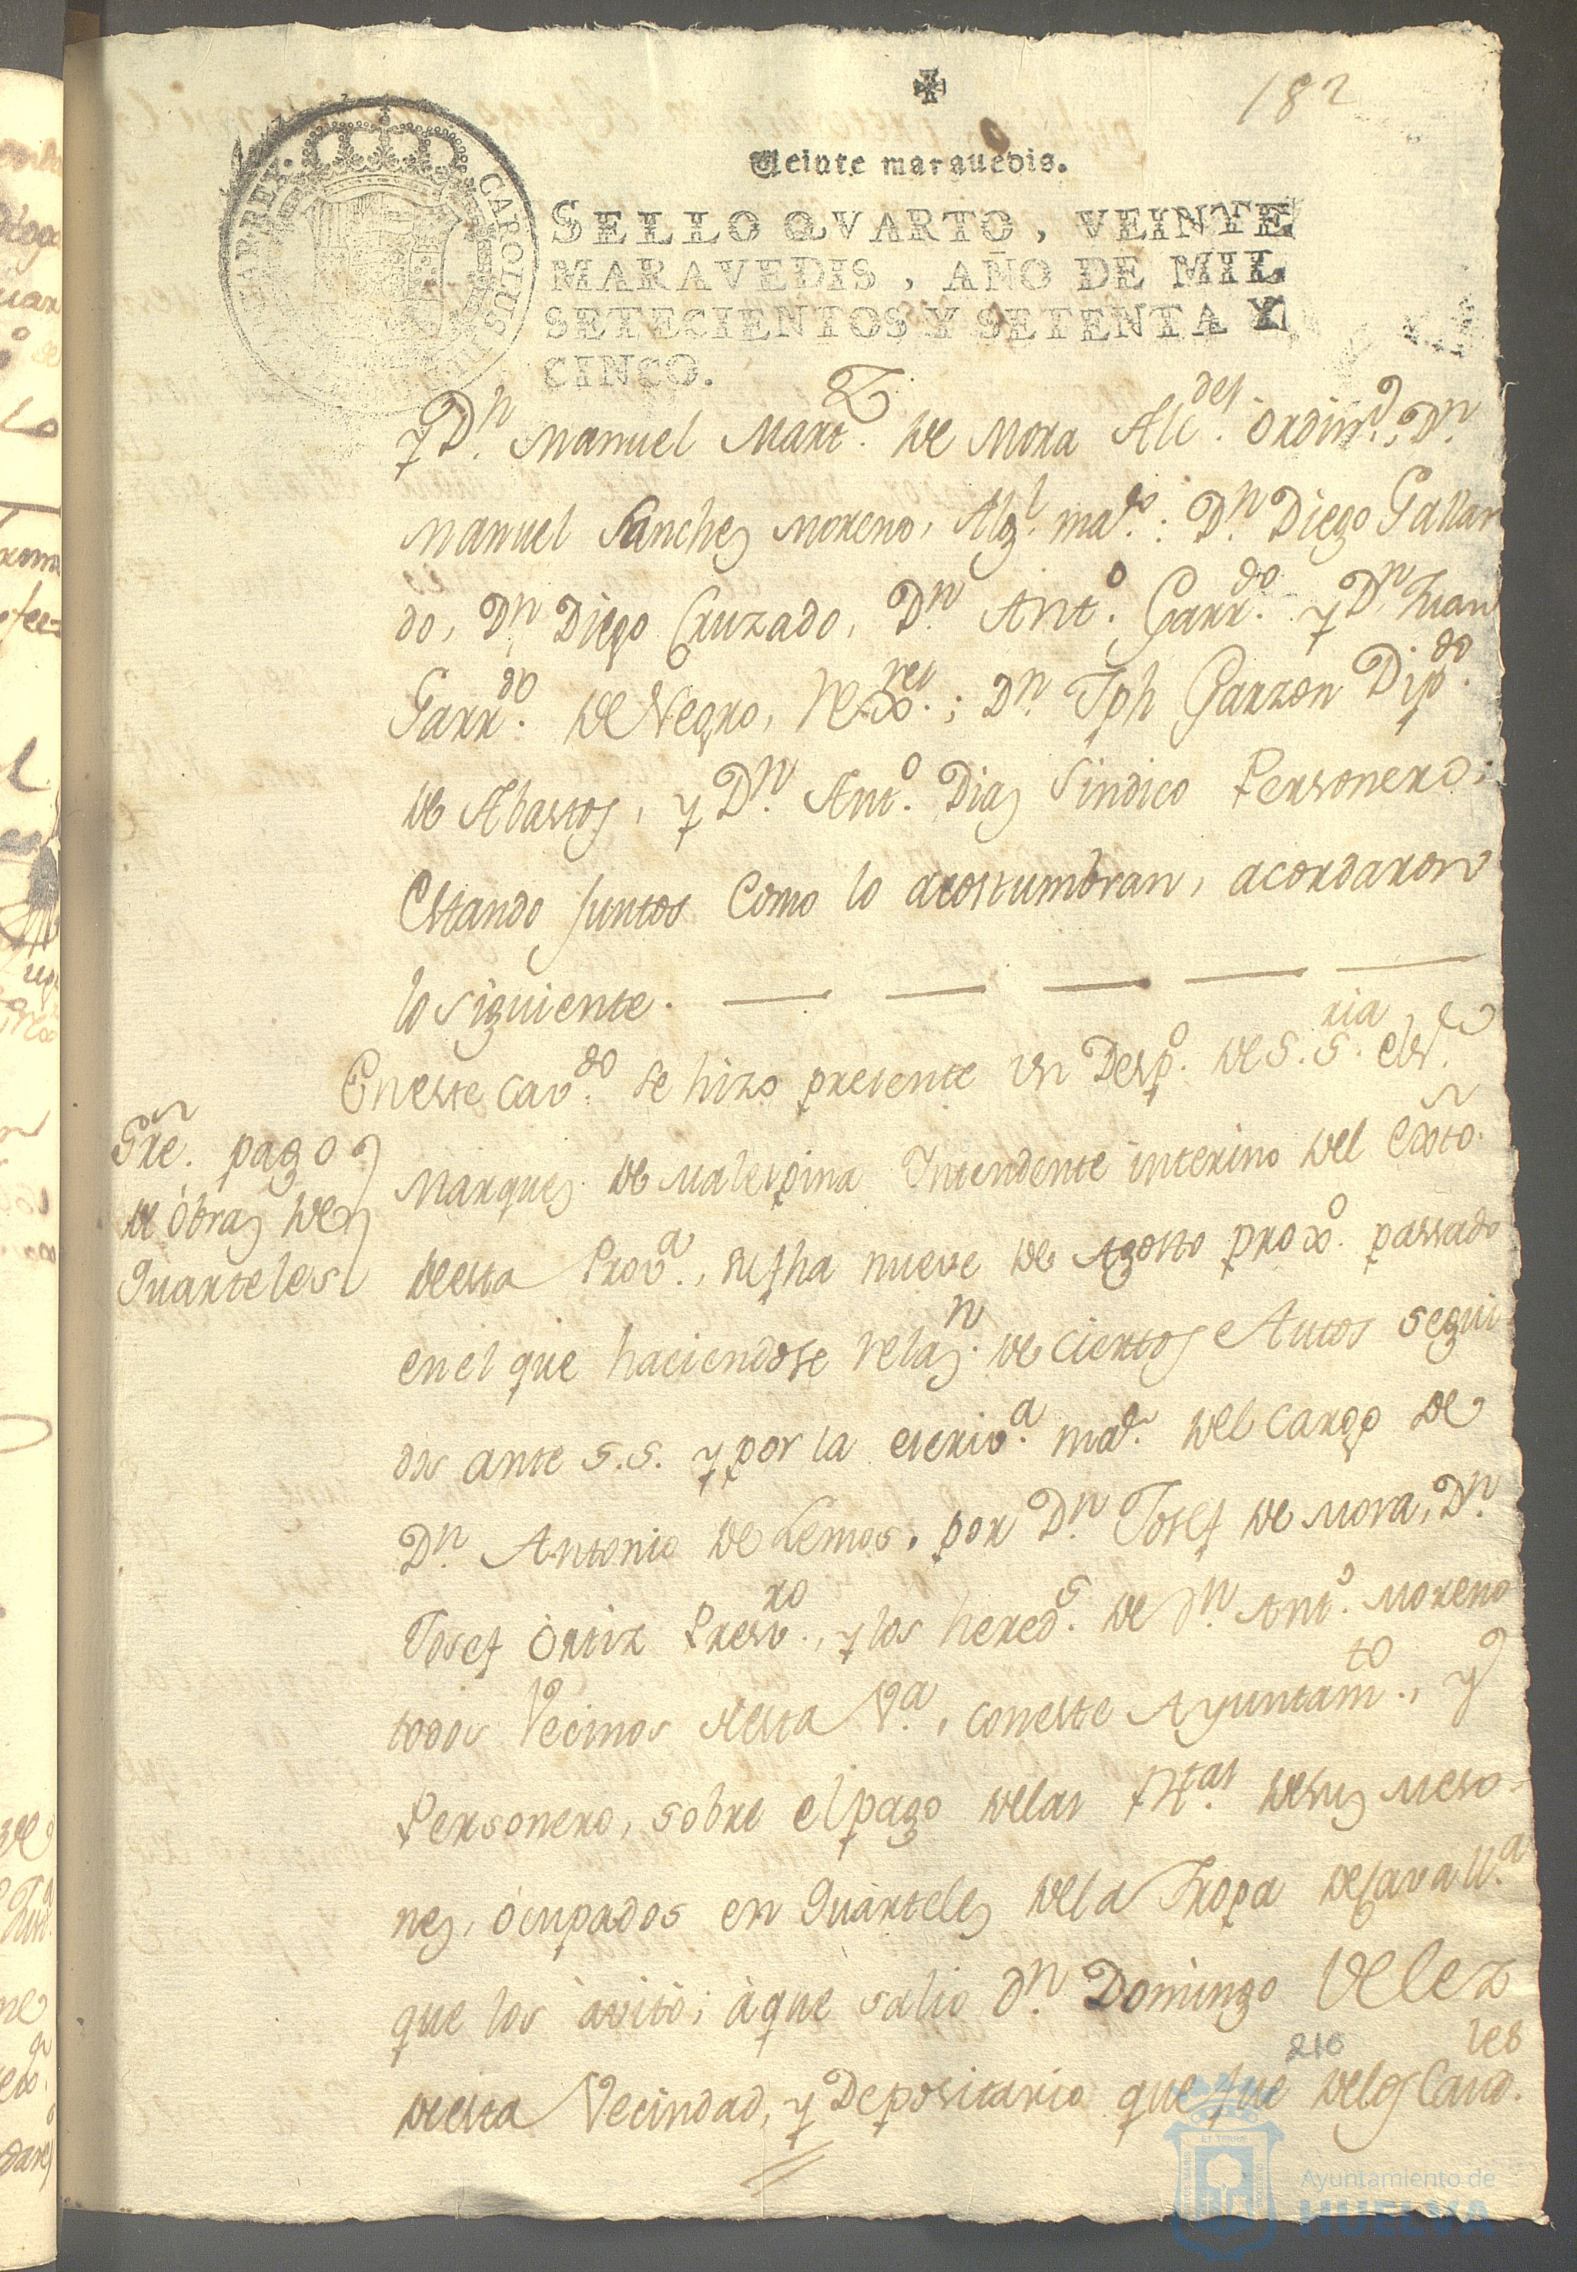 182
Veinte marauedis.
CAROLUS
SELLO QVARTO, VEINTE
MARAVEDIS, AÑO DE MIL
SETECIENTOS Y SETENTA Y
CINCO.
y Dn. Manuel Martz. de Mora Alcdes. ordins. Dn.
Manuel Sanchez Moreno, Algl. mator.: Dn. Diego Gallar
do, Dn. Diego Cruzado, Dn. Anto. Garrdo. y Dn. Juan
Garrdo. de Negro, Rexdores.; Dn. Jph Garzon Dipdo.
de Abastos, y Dn. Anto. Diaz Sindico Personero;
Estando juntos como lo acostumbran, acordaron
lo siguiente.
En este cavdo. se hizo presente un Despo. de S. Sria. el Sr.
Marques de Malespina Intendente interino del Exto.
de esta Prova., su fha nueve de Agosto proxo. passado
en el que haciendose relazn. de ciertos Autos segui
dos ante S.S. y por la escriva. mar. del cargo de
Dn. Antonio de Lemos, por Dn. Josef de Mora, Dn.
Josef Ortiz Presvro., y los hereds. de Dn. Anto. Moreno
todos Vecinos desta Va., con este Ayuntamto., y
Personero, sobre el pago de las rtas. de sus Meso-
nes, ocupados en Quarteles de la Tropa de Cavalla.
que los avitó; à que salio Dn. Domingo Velez
de esta Vecindad, y Depositario que fue de los Caudles.
Sre. pago
de obras de
Quarteles
216
Ayuntamiento de
HUELVA